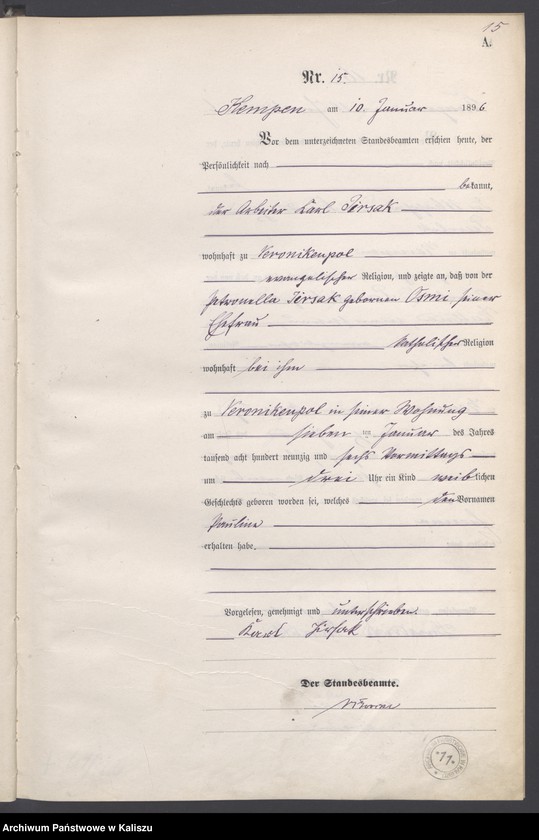 15
A.
Nr. 15.
Kempen am 10. Januar 1896
Vor dem unterzeichneten Standesbeamten erschien heute, der
Persönlichkeit nach
bekannt,
der Arbeiter Karl Jirsak
wohnhaft zu Veronikenpol
evangelischer Religion, und zeigte an, daß von der
Petronella Jirsak gebornen Osmi seiner
Ehefrau
katholischer Religion
wohnhaft bei ihm
zu Veronikenpol in seiner Wohnung
am sieben ten Januar des Jahres
tausend acht hundert neunzig und sechs Vormittags
um drei Uhr ein Kind weiblichen
Geschlechts geboren worden sei, welches den Vornamen
Pauline
erhalten habe.
Vorgelesen, genehmigt und unterschrieben.
Karl Jirsak
Der Standesbeamte.
"11"
Archiwum Państwowe w Kaliszu